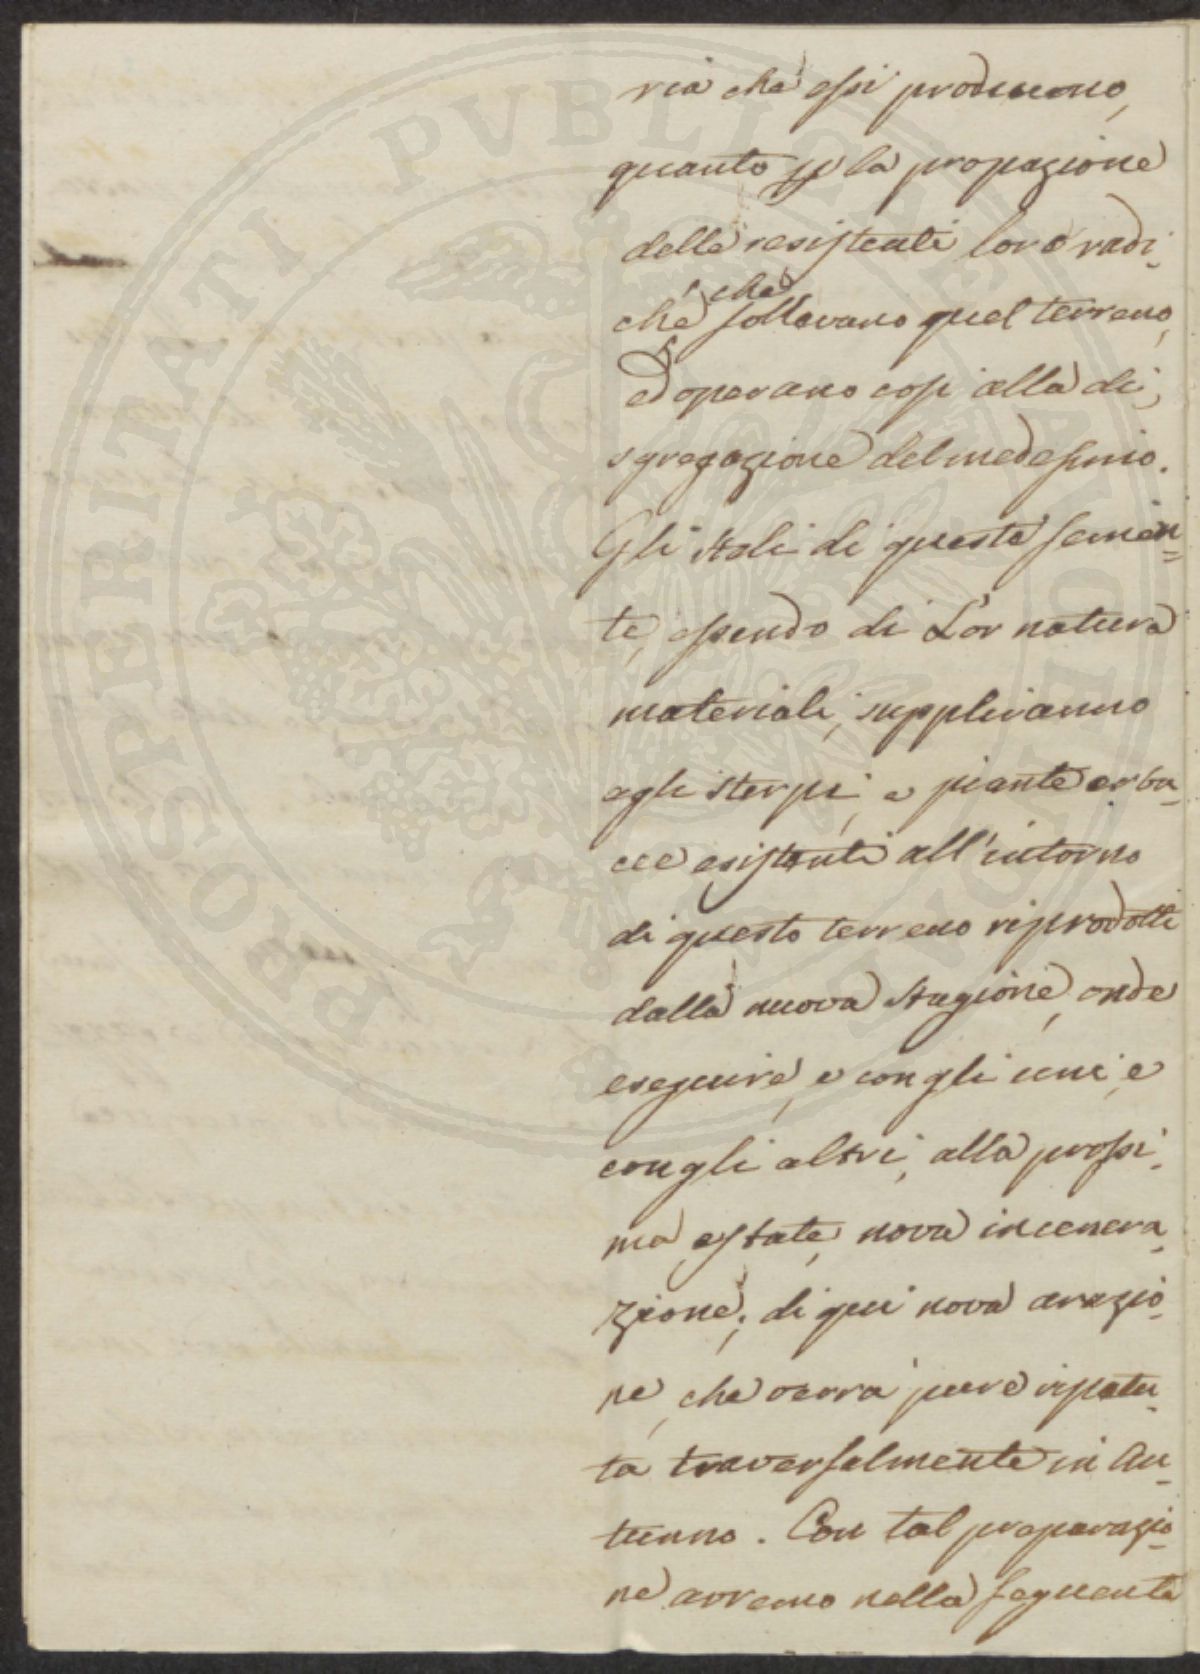 ria che essi producono,
quanto p la propazione
delle resistenti loro radi-
che che sollevano quel terreno,
ed operano così alla di-
sgregazione del medesimo.
Gli stoli di queste semen=
te, essendo di Lor natura
materiali, suppliranno
agli sterpi, e piante erba-
cee esistenti all'intorno
di questo terreno riprodotti
dalla nuova stagione, onde
eseguire, e con gli uni, e
con gli altri, alla prossi-
ma estate, nova incenera-
zione; di qui nova arazio-
ne, che verrà pure ripetu-
ta traversalmente in Au-
tunno. Con tal preparazio-
ne avremo nella seguente
PROSPERITATI PVBLICAE